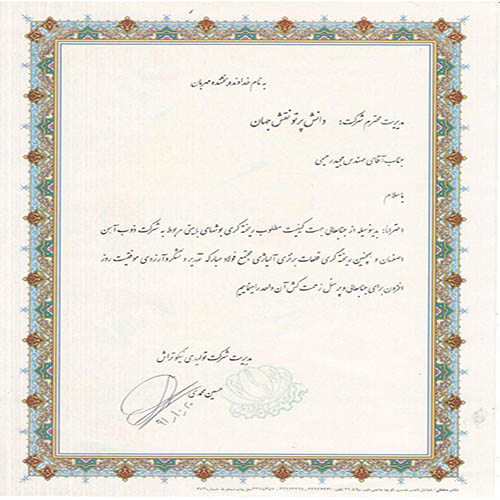 به نام خداوند بخشنده مهربان
مدیریت محترم شرکت: دانش پرتو نقش جهان
جناب آقای مهندس مجید رحیمی
با سلام
احتراما: بدینوسیله از جنابعالی جهت کیفیت مطلوب ریخته گری بوشهای بابیتی مربوط به شرکت ذوب آهن
اصفهان و همچنین ریخته گری قطعات برنزی آلیاژی مجتمع فولاد مبارکه تقدیر و تشکر و آرزوی موفقیت روز
افزون برای جنابعالی و پرسنل زحمت کش آن واحد را مینماییم
مدیریت شرکت تولیدی نیکو تراش
حسین محمدی
۹۱،۱۰،۲۰